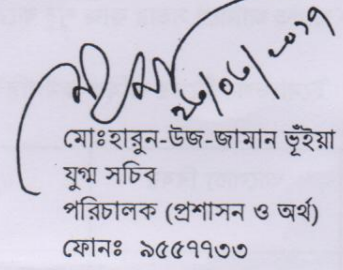 মোঃহারুন-উজ-জামান ভূঁইয়া
যুগ্ম সচিব
পরিচালক (প্রশাসন ও অর্থ)
ফোনঃ ৯৫৫৭৭৩৩